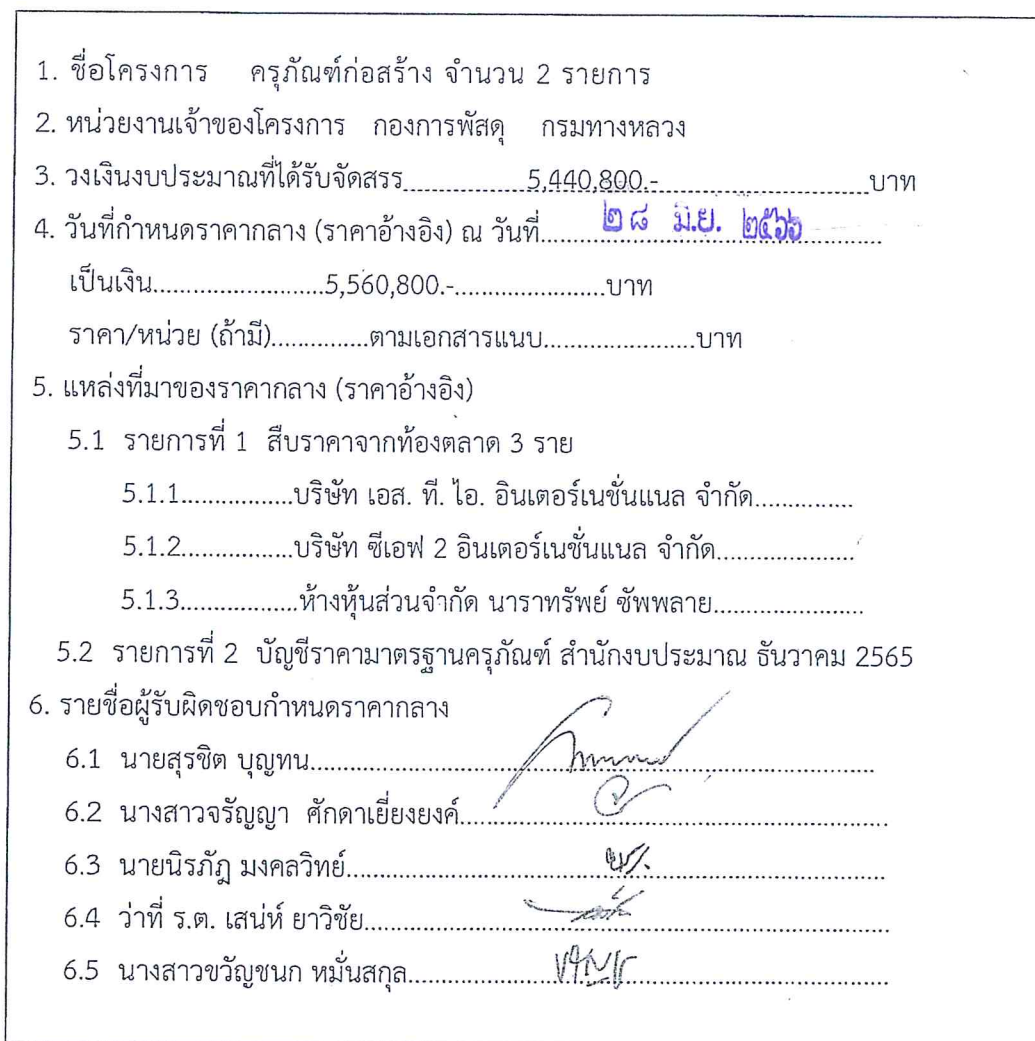 1. ชื่อโครงการ ครุภัณฑ์ก่อสร้าง จำนวน 2 รายการ
2. หน่วยงานเจ้าของโครงการ กองการพัสดุ กรมทางหลวง
3. วงเงินงบประมาณที่ได้รับจัดสรร................5,440,800.-...........................บาท
4. วันที่กำหนดราคากลาง (ราคาอ้างอิง) ณ วันที่......๒๘ มิ.ย. ๒๕๖๖............
เป็นเงิน.........................5,560,800.-......................บาท
ราคา/หน่วย (ถ้ามี)..............ตามเอกสารแนบ......................บาท
5. แหล่งที่มาของราคากลาง (ราคาอ้างอิง)
5.1 รายการที่ 1 สืบราคาจากท้องตลาด 3 ราย
5.1.1................บริษัท เอส. ที. ไอ. อินเตอร์เนชั่นแนล จำกัด...............
5.1.2................บริษัท ซีเอฟ 2 อินเตอร์เนชั่นแนล จำกัด....................
5.1.3.................ห้างหุ้นส่วนจำกัด นาราทรัพย์ ซัพพลาย......................
5.2 รายการที่ 2 บัญชีราคามาตรฐานครุภัณฑ์ สำนักงบประมาณ ธันวาคม 2565
6. รายชื่อผู้รับผิดชอบกำหนดราคากลาง
6.1 นายสุรชิต บุญทน................................................................
6.2 นางสาวจรัญญา ศักดาเยี่ยงยงค์................................................
6.3 นายนิรภัฎ มงคลวิทย์............................................................
6.4 ว่าที่ ร.ต. เสน่ห์ ยาวิชัย..........................................................
6.5 นางสาวขวัญชนก หมั่นสกุล....................................................